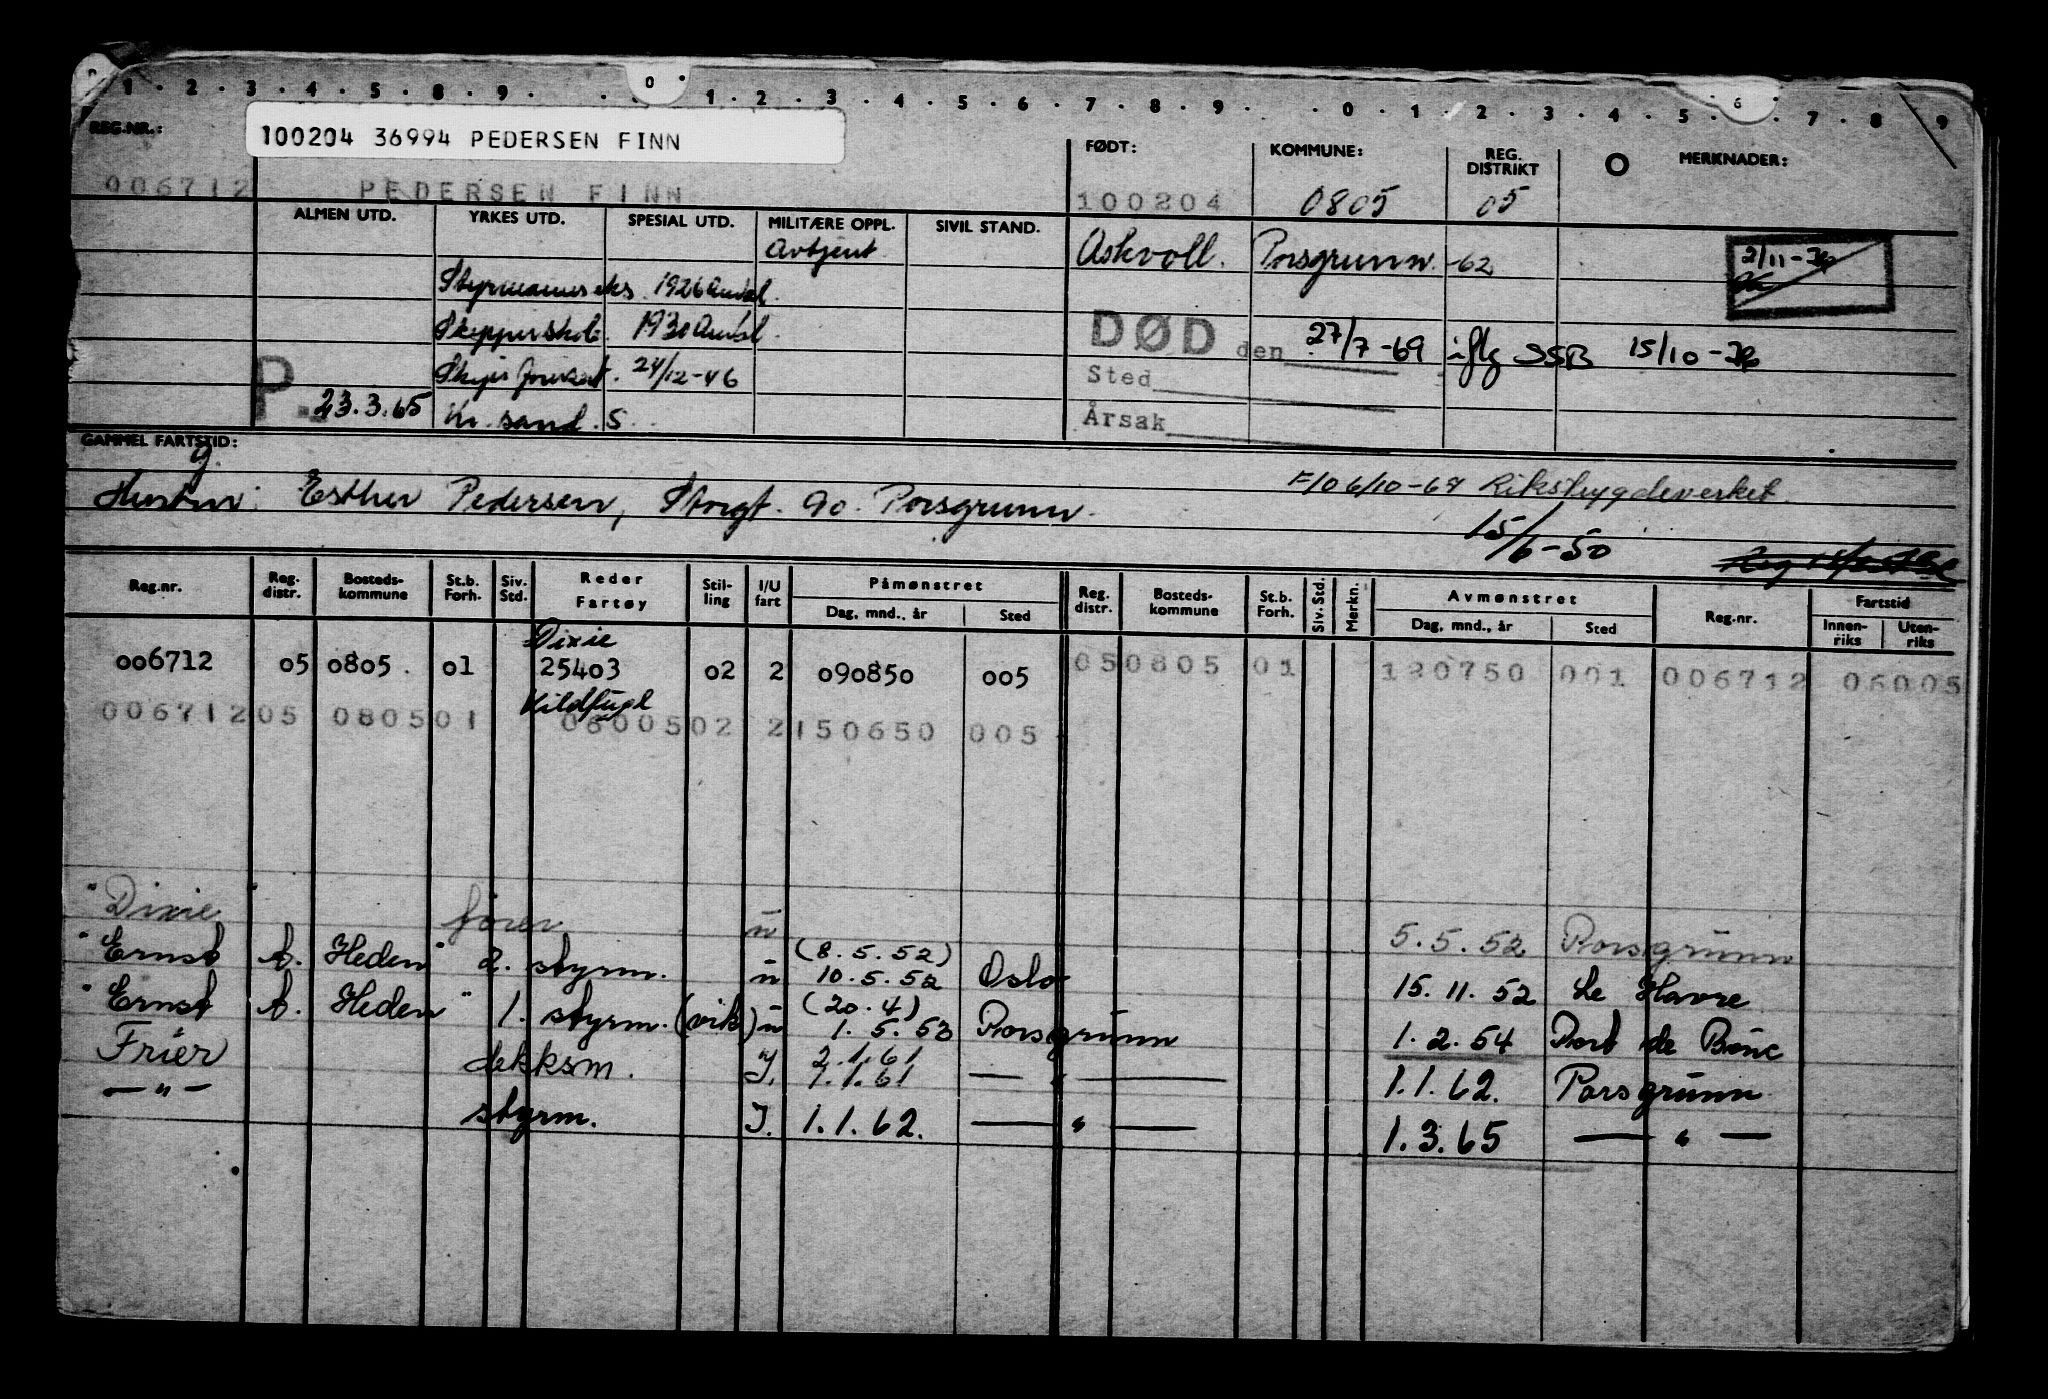 1 . 2 . 3 . 4 . 5 . 8 . 9 . . 0 . 1 . 2 . 3 . 4 . 5 . 6 . 7 . 8 . 9 . . 0 . 1 . 2 . 3 . 4 . 5 . 6 . 7 . 8 . 9
REG.NR.: FØDT: KOMMUNE: REG. DISTRIKT O MERKNADER:
100204 36994 PEDERSEN FINN
006712 PEDERSEN FINN 100204 0805 05
ALMEN UTD. YRKES UTD. SPESIAL UTD. MILITÆRE OPPL. SIVIL STAND.
Avtjent Askvoll. Porsgrunn -62 2/11-
Styrmannseks. 1926 Arendal.
Skipperskole. 1930 Arendal. DØD den 27/7-69 iflg SSB 15/10-
24/12-46 Sted
P. 23.3.65 Kr. sand. S. Årsak
GAMMEL FARTSTID:
Hustru: Esther Pedersen, Storgt. 90. Porsgrunn. 6/10-69 Rikstrygdeverket.
15/6-50
Reg.nr. Reg. distr. Bosteds-kommune St.b. Forh. Siv. Std. Reder Fartøy Stil-ling I/U fart Påmønstret Dag, mnd., år Sted Reg. distr. Bosteds-kommune St.b. Forh. Siv. Std. Merkn. Avmønstret Dag, mnd., år Sted Reg.nr. Fartstid Innen-riks Uten-riks
Dixie
006712 05 0805. 01 25403 02 2 090850 005 050805 01 120750 001 006712 06005
Kildfugl
006712 05 0805 01 06005 02 2 150650 005
"Dixie" fører u 5.5.52 Porsgrunn
"Ernst A. Heden" 2. styrm. u (8.5.52) 10.5.52 Oslo 15.11.52 Le Havre
"Ernst A. Heden" 1. styrm. (vik) u (20.4) 1.5.53 Porsgrunn 1.2.54 Port de Bouc
Frier dekksm. I. 2.1.61 1.1.61 — " — 1.1.62. Porsgrunn
— " — styrm. I. 1.1.62. — " — 1.3.65 — " —